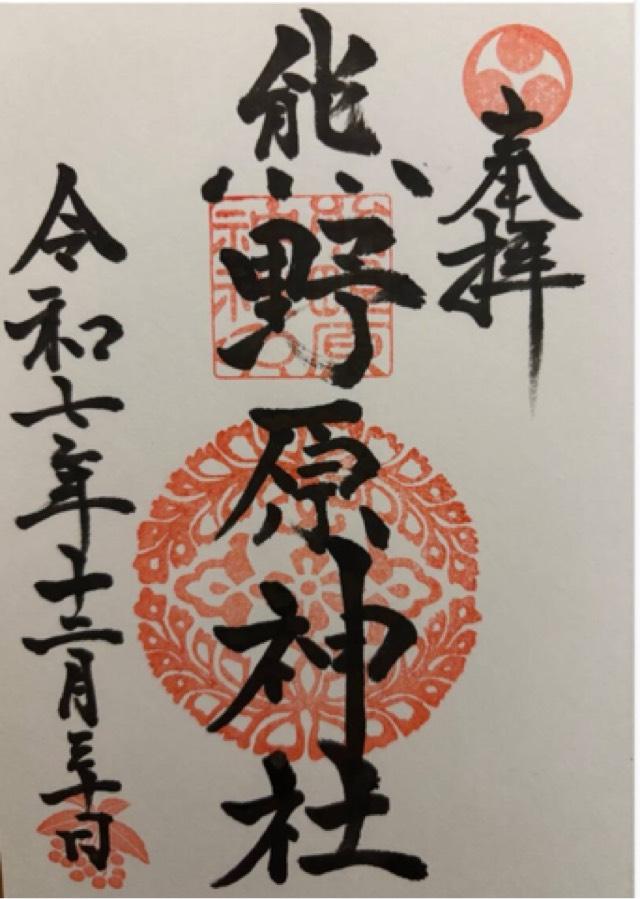 奉拝
熊野原神社
令和七年十二月三十日